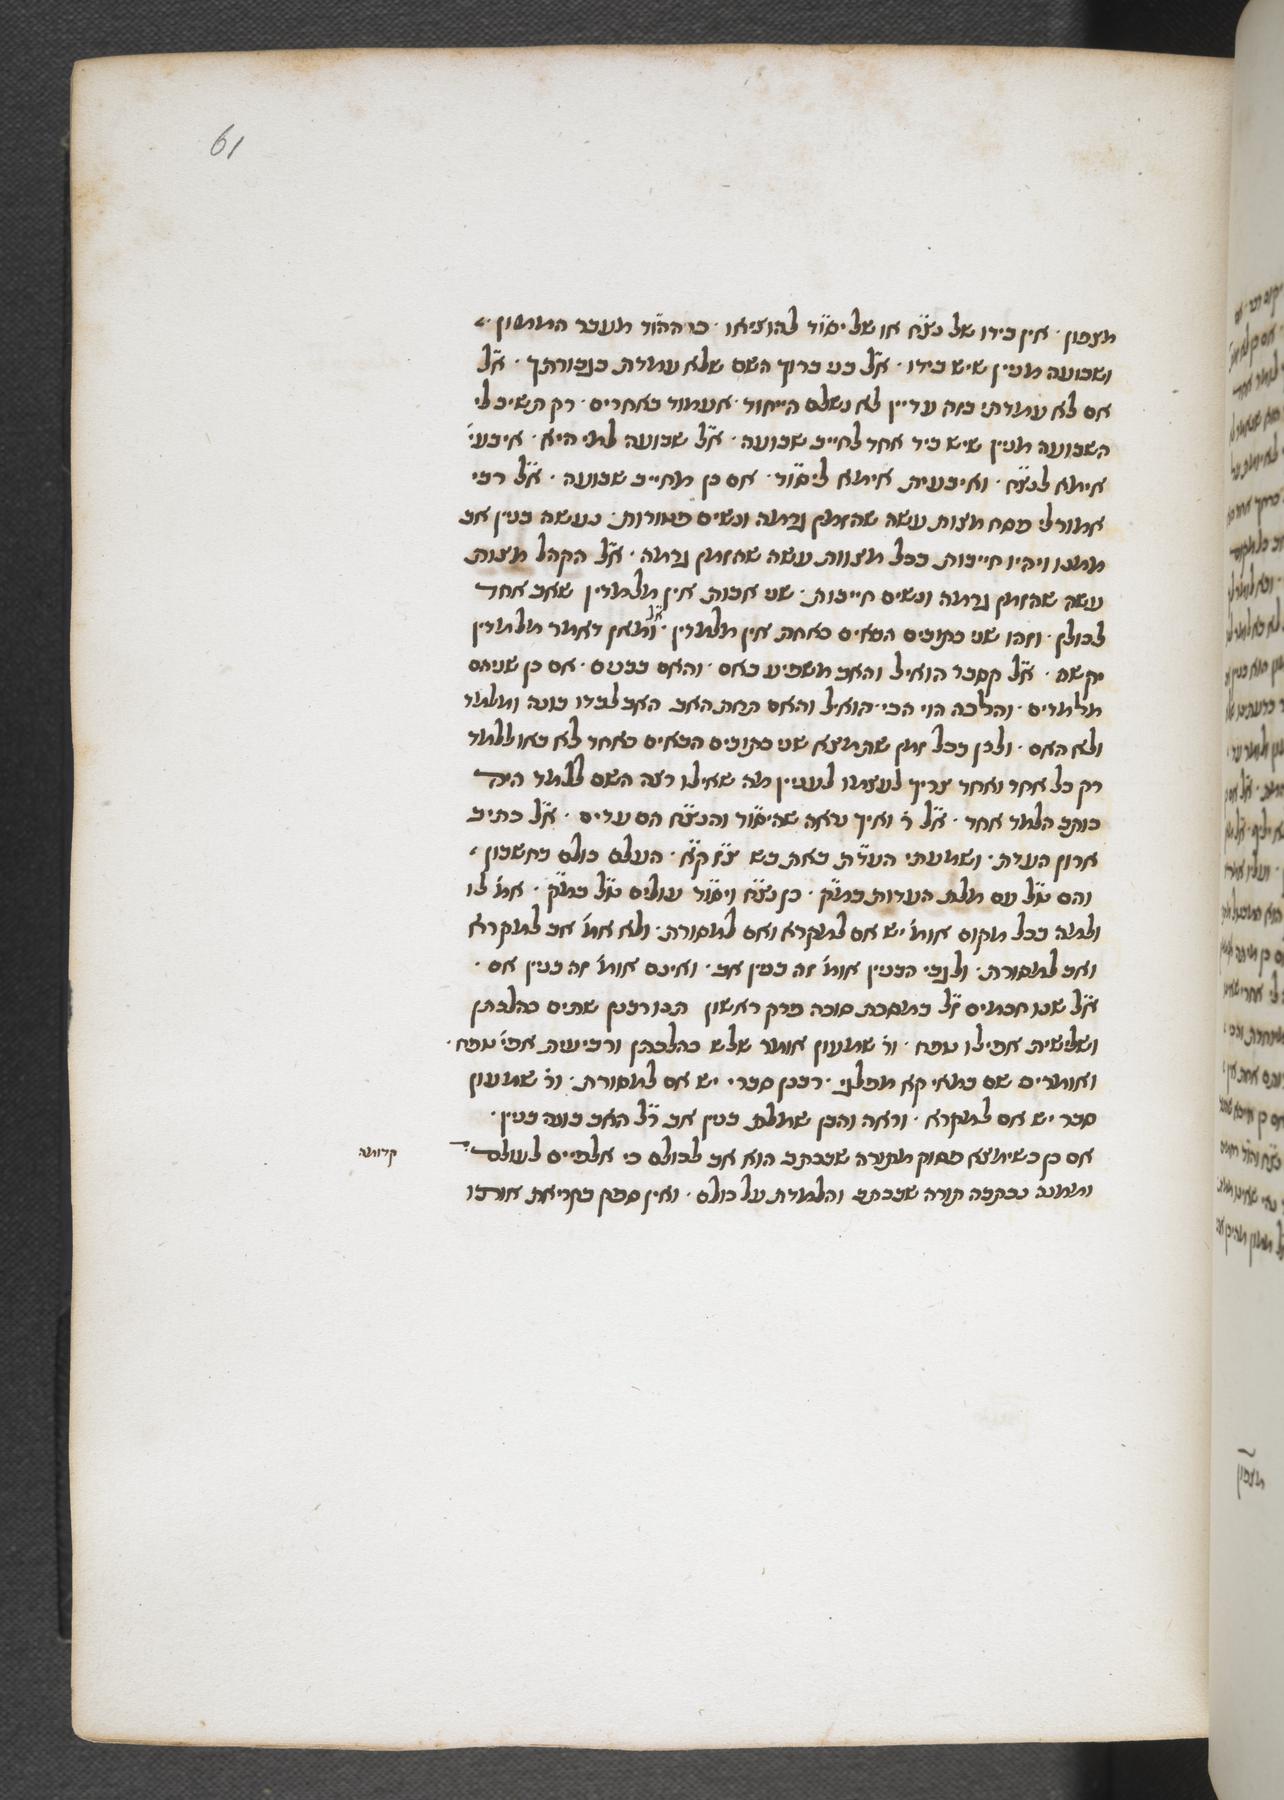 61
מצפון · אין בידו של נצ״ח או של יסו״ד להוציאו · כי ההו״ד מעכב הממון ·
ושבועה מנין שיש בידו · א״ל בני ברוך השם שלא עמדת בגבורתך · א״ל
אם לא עמדתי בזה עדיין לא נשלם הייחוד · אעמוד באחרים · רק תשיב לי
השבועה מנין שיש ביד אחד לחייב שבועה · א״ל שבועה למי היא · איבעי׳
אימא לנצ״ח · ואיבעית אימא ליסו״ד · אם כן מחייב שבועה · א״ל רבי
אמור לי פסח מצות עשה שהזמן גרמה ונשים פטורות · נעשה בנין אב
ממנו ויהיו חייבות בכל מצוות עשה שהזמן גרמה · א״ל הקהל מצות
עשה שהזמן גרמה ונשים חייבות · שני אבות אין מלמדין שאב אחד
לכולן · וזהו שני כתובים הבאים כאחת אין מלמדין · א״ל ומאן דאמר מלמדין
יקשה · א״ל קסבר הואיל והאב משפיע באם · והאם בבנים · אם כן שניהם
מלמדים · והלכה הוי הכי הואיל והאם תחת האב האב לבדו בונה ומלמד
ולא האם · ולכן בכל זמן שתמצא שני כתובים הבאים כאחד לא באו ללמד
רק כל אחד ואחד צריך לעצמו לעניין מה שאילו רצה השם ללמד היה
כותב הלמד אחד · א״ל ר׳ ואיך נראה שהיסו״ד והנצ״ח הם עדים · א״ל כתיב
ארון העדת · ושמעתי העד״ת באת בש · העלם כולם בחשבון ·
והם עם מלת העדות · כן נצ״ח ויסו״ד עולים · אמ׳ לו
ולמה בכל מקום אומ׳ יש אם למקרא ואם למסורת · ולא אמ׳ אב למקרא
ואב למסורת · ולגבי הבנין אומ׳ זה בנין אב · ואינם אומ׳ זה בנין אם ·
א״ל שנו חכמים ז״ל במסכת סוכה פרק ראשון תנו רבנן שתים כהלכתן
ושלישית אפילו טפח · ור׳ שמעון אומר שלש כהלכתן ורביעית אפי׳ טפח ·
ואומרים שם במאי קא מפלגי · רבנן סברי יש אם למסורת · ור׳ שמעון
סבר יש אם למקרא · וראה והבן שמלת בנין אב ר״ל האב בונה בנין ·
אם כן כשימצא פסוק מתורה שבכתב הוא אב לכולם כי אלפיים לעולם
קדומה
וממנה נכתבה תורה שבכתב והלמדת על כולם · ואין ספק בקריאת אותו